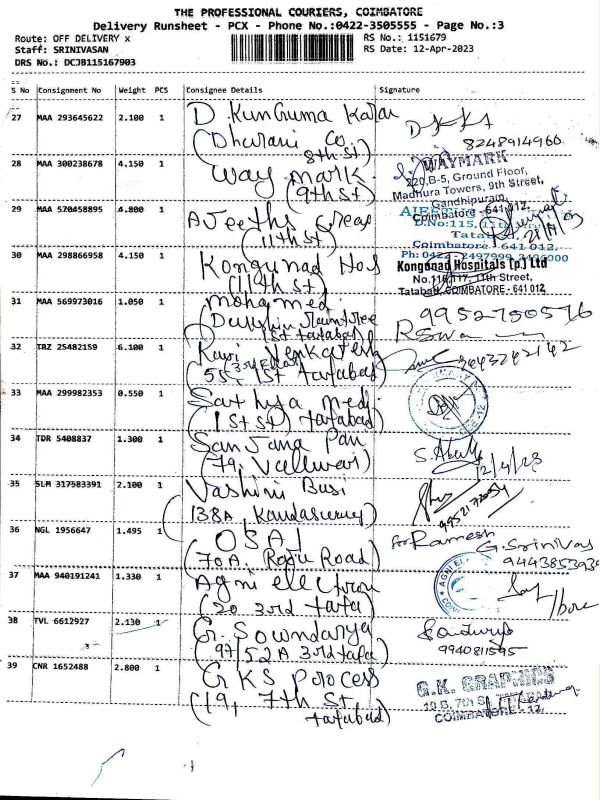 THE PROFESSIONAL COURIERS, COIMBATORE
Delivery Runsheet - PCX - Phone No.:0422-3505555 - Page No.:3
Route: OFF DELIVERY x
RS No.: 1151679
Staff: SRINIVASAN
RS Date: 12-Apr-2023
DRS No.: DCJB115167903
S No Consignment No Weight PCS Consignee Details Signature
27 MAA 293645622 2.100 1 D. Kunguma Kala
(Dharani Co
8th St)
8248914960
28 MAA 300238678 4.150 1 Way mark
(9th St)
WAYMARK
220,B-5, Ground Floor,
Madhura Towers, 9th Street,
Gandhipuram,
Coimbatore - 641 012.
29 MAA 570458895 4.800 1
(11th St)
D.No:115,
Tatabad,
Coimbatore - 641 012.
Ph: 0422 - 2497999, 2496000
30 MAA 298866958 4.150 1 Kongunad Hos
(11th St)
Kongunad Hospitals (p.) Ltd
11th Street,
Tatabad, COIMBATORE - 641 012
31 MAA 569973016 1.050 1 mohamed
1st tatabad)
9952780576
32 TRZ 25482159 6.100 1 Ravi Venkatesh
1st tatabad)
33 MAA 299982353 0.550 1 Sathya medi
(1st St) tatabad)
34 TDR 5408837 1.300 1 Sanjana Pan
(79, Valluvar)
12/4/23
35 SLM 317583391 2.100 1 Vashini Busi
138A, Kandasamy)
36 NGL 1956647 1.495 1 OSAI
(70A, Raju Road)
for Ramesh
G. Srinivas
37 MAA 940191241 1.330 1 Agni electron
(20 3rd tata)
AGNI EL
38 TVL 6612927 2.130 1 G. Sowndarya
(97/52A 3rd tata)
9940811595
39 CNR 1652488 2.800 1 GKS process
(19, 7th St
tatabad)
G.K. GRAPHICS
19 B, 7th St, TATABAD
COIMBATORE - 12.